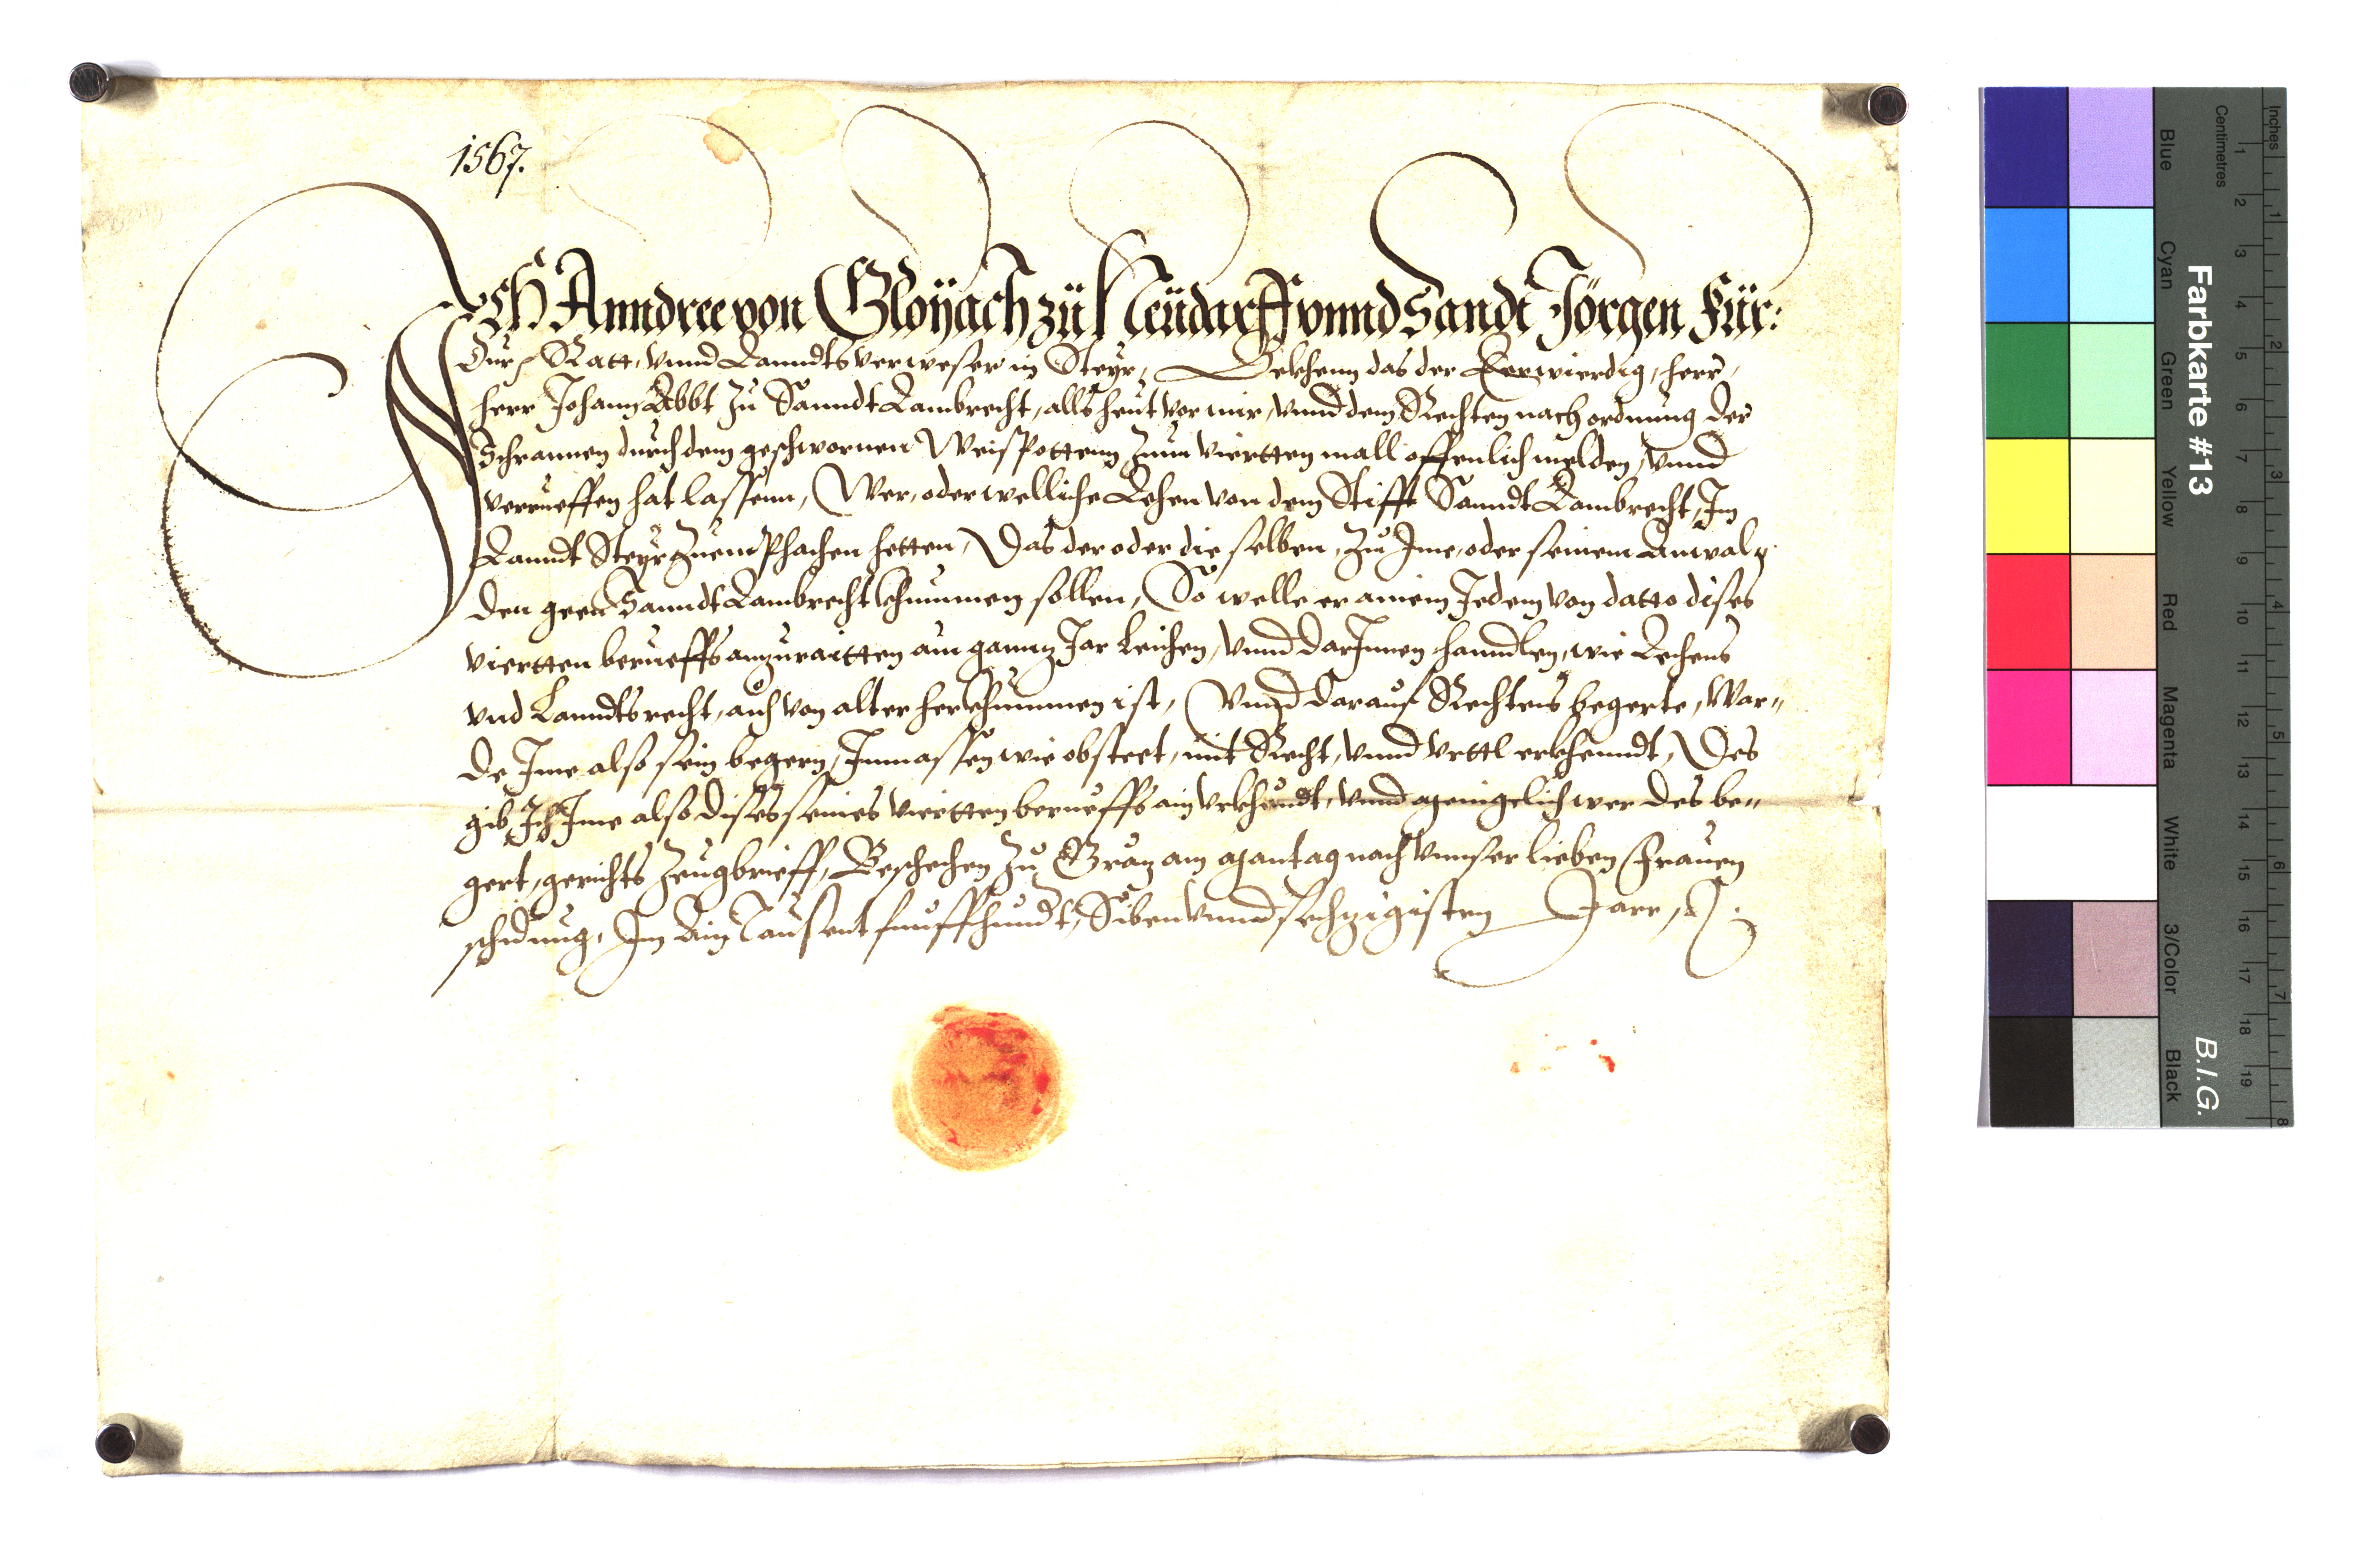 1567.
Ich Anndree von Gloÿach zü Neüdarff vnnd Sandt Jörgen Für:
Dur: Ratt, vnnd Lanndtsverweser in Steyr, Bekhenn das der Eerwierdig, herr,
herr Johann Abbt zu Sanndt Lambrecht, alls heut vor mir, vnnd dem Rechten nach ordnung der
Schrannen durch dem geschwornen Weispottenn zum viertten mall offenlich melden, vnnd
verrueffen hat lassenn, Wer, oder welliche Lehen von dem Stifft Sanndt Lambrecht, Im
Lanndt Steyr zuemPhachen hetten, Das der oder die selben, zu Ime, oder seinem Anwalg
den geen Sanndt Lambrecht khummen sollen, So welle er ainem Jedem von datto dises
viertten berueffs anzuraitten ain gannz Jar Leichen, vnnd darJnnen hanndlen, wie Lechens
vnd Lanndtsrecht, auch von alter herkhummen ist, Vnnd darauf Rechtens begerte, War„
de Jme also sein begern, Jnmassen wie obsteet, mit Recht, vnnd vrttl erkhenndt, Des
gib Ich Ime also dises seines viertten berueffs ain vrkhundt, vnnd menigelich wer des be„
gert, gerichts Zeugbrieff, Beschechen zu Gräz am Mantag nach vnnser lieben Frauen
schidung, Im Ain Tausent funffhundt, Siben vnnd sechzigisten Jare,
Farbkarte #13
B.I.G.
Inches
Centimetres
Blue
Cyan
Green
Yellow
Red
Magenta
White
3/Color
Black
1 2 3 4 5 6 7 8 9 10 11 12 13 14 15 16 17 18 19
1 2 3 4 5 6 7 8